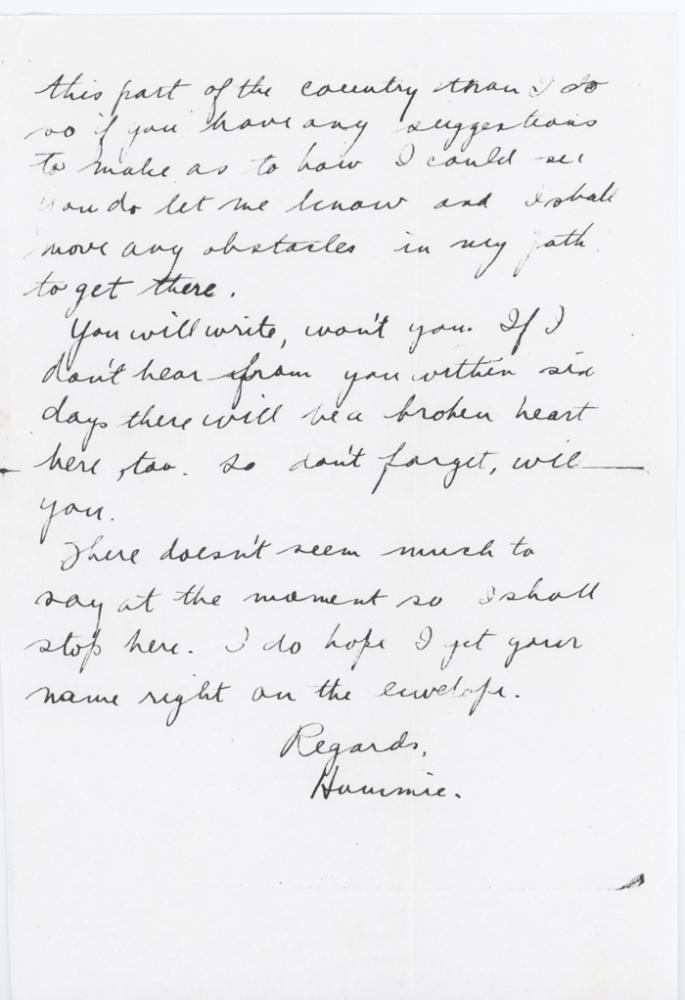 this part of the country than I do
so if you have any suggestions
to make as to how I could see
you do let me know and I shall
move any obstacles in my path
to get there.
You will write, won't you. If I
don't hear from you within six
days there will be a broken heart
here, too. So don't forget, will
you.
There doesn't seem much to
say at the moment so I shall
stop here. I do hope I get your
name right on the envelope.
Regards,